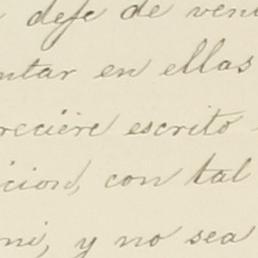 defe de ven
ntar en ellas
reciere escrito
icion, con tal
ni, y no sea